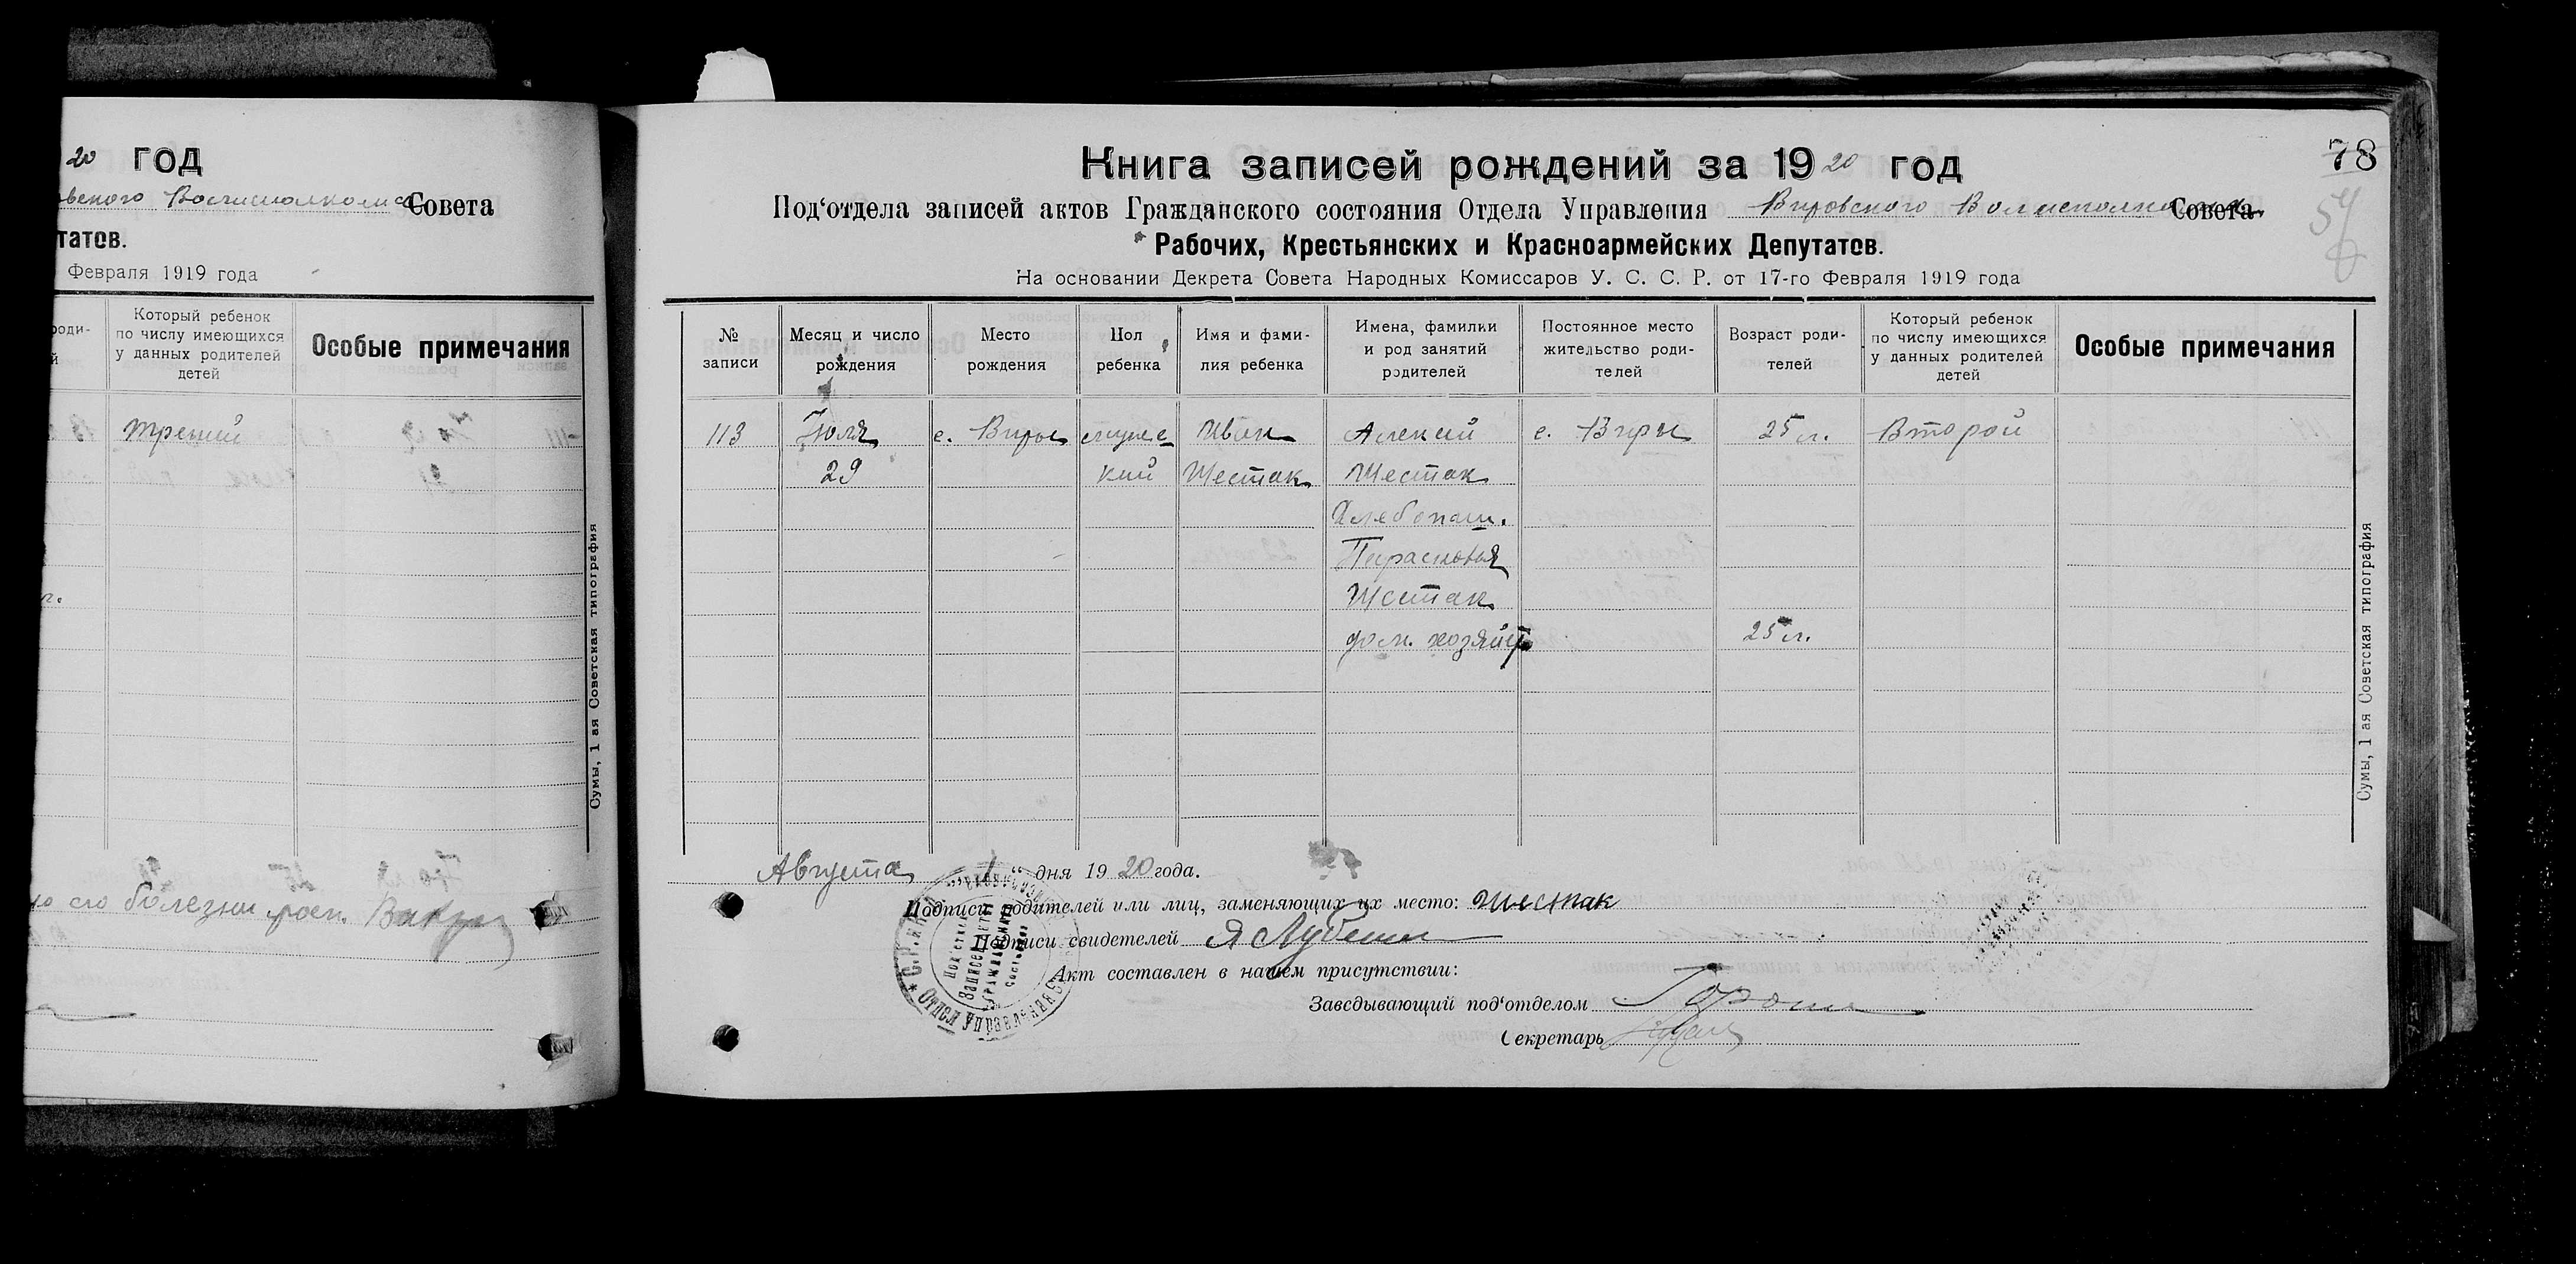 20 год
Совета
татов.
Февраля 1919 года
Который ребенок
по числу имеющихся
у данных родителей
детей
Особые примечания
третий
Сумы, 1 ая Советская типография
его болезни росп.
78
Книга записей рождений за 1920 год
Под‘отдела записей актов Гражданского состояния Отдела Управления Вировского Волисполкома Совета
Рабочих, Крестьянских и Красноармейских Депутатов.
На основании Декрета Совета Народных Комиссаров У. С. С. Р. от 17-го Февраля 1919 года
№
записи
Месяц и число
рождения
Место
рождения
Пол
ребенка
Имя и фами-
лия ребенка
Имена, фамилии
и род занятий
родителей
Постоянное место
жительство роди-
телей
Возраст роди-
телей
Который ребенок
по числу имеющихся
у данных родителей
детей
Особые примечания
113
Июля
29
с. Виры
мужс
кий
Иван
Шестак
Алексей
Шестак
Хлебопаш.
Парасковья
Шестак
дом. хозяйст
с. Виры
25 л.
25 л.
Второй
Сумы, 1 ая Советская типография
Августа „1“ дня 1920 года.
Подписи родителей или лиц, заменяющих их место: Шестак
Подписи свидетелей Я
Акт составлен в нашем присутствии:
Заведывающий под‘отделом
Секретарь
Отдел Управления